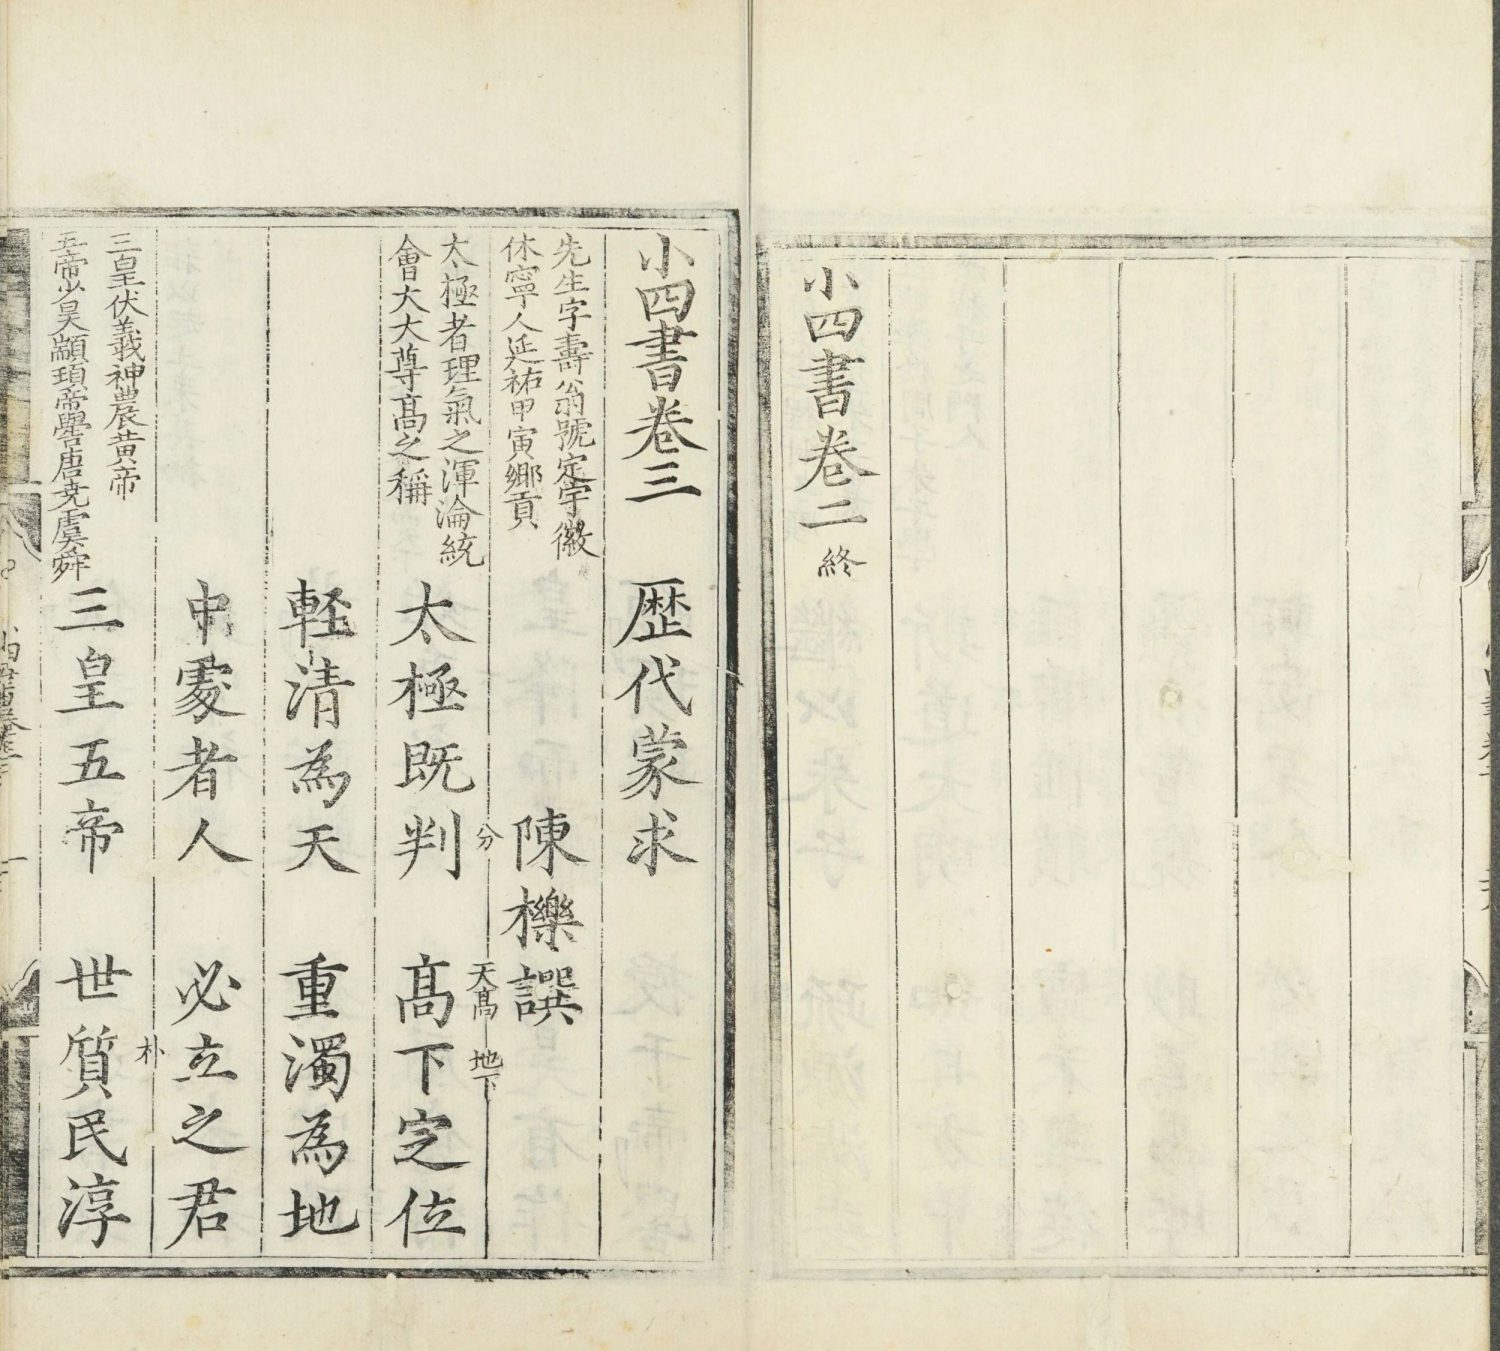 小四書卷二 終
小四書卷三 歷代蒙求
先生字壽翁號定宇徽
休寧人延祐甲寅鄉貢
陳櫟譔
太極者理氣之渾淪統
會大大尊高之稱
分
天高
地下
太極既判 高下定位
輕清為天 重濁為地
中處者人 必立之君
三皇伏羲神農黃帝
五帝少昊顓頊帝嚳唐堯虞舜
朴
三皇五帝 世質民淳